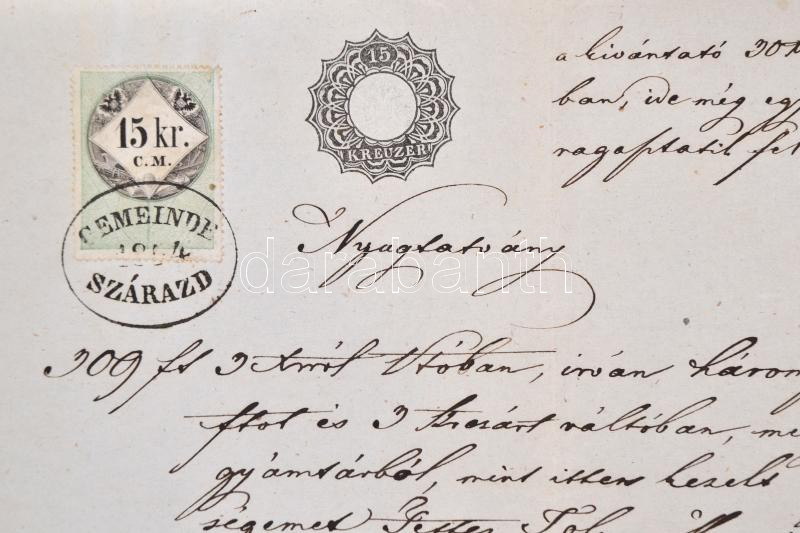 15 kr.
C.M.
GEMEINDE
1854
SZÁRAZD
15
KREUZER
a kivántató 30
ban, ide még egy
ragaptatik fel
Nyugtatvány
309 ft 3 Xrról Vtóban, irván három
ftot és 3 krczárt váltóban, me
gyámtárból, mint itten kezelt
ségemet
darabanth